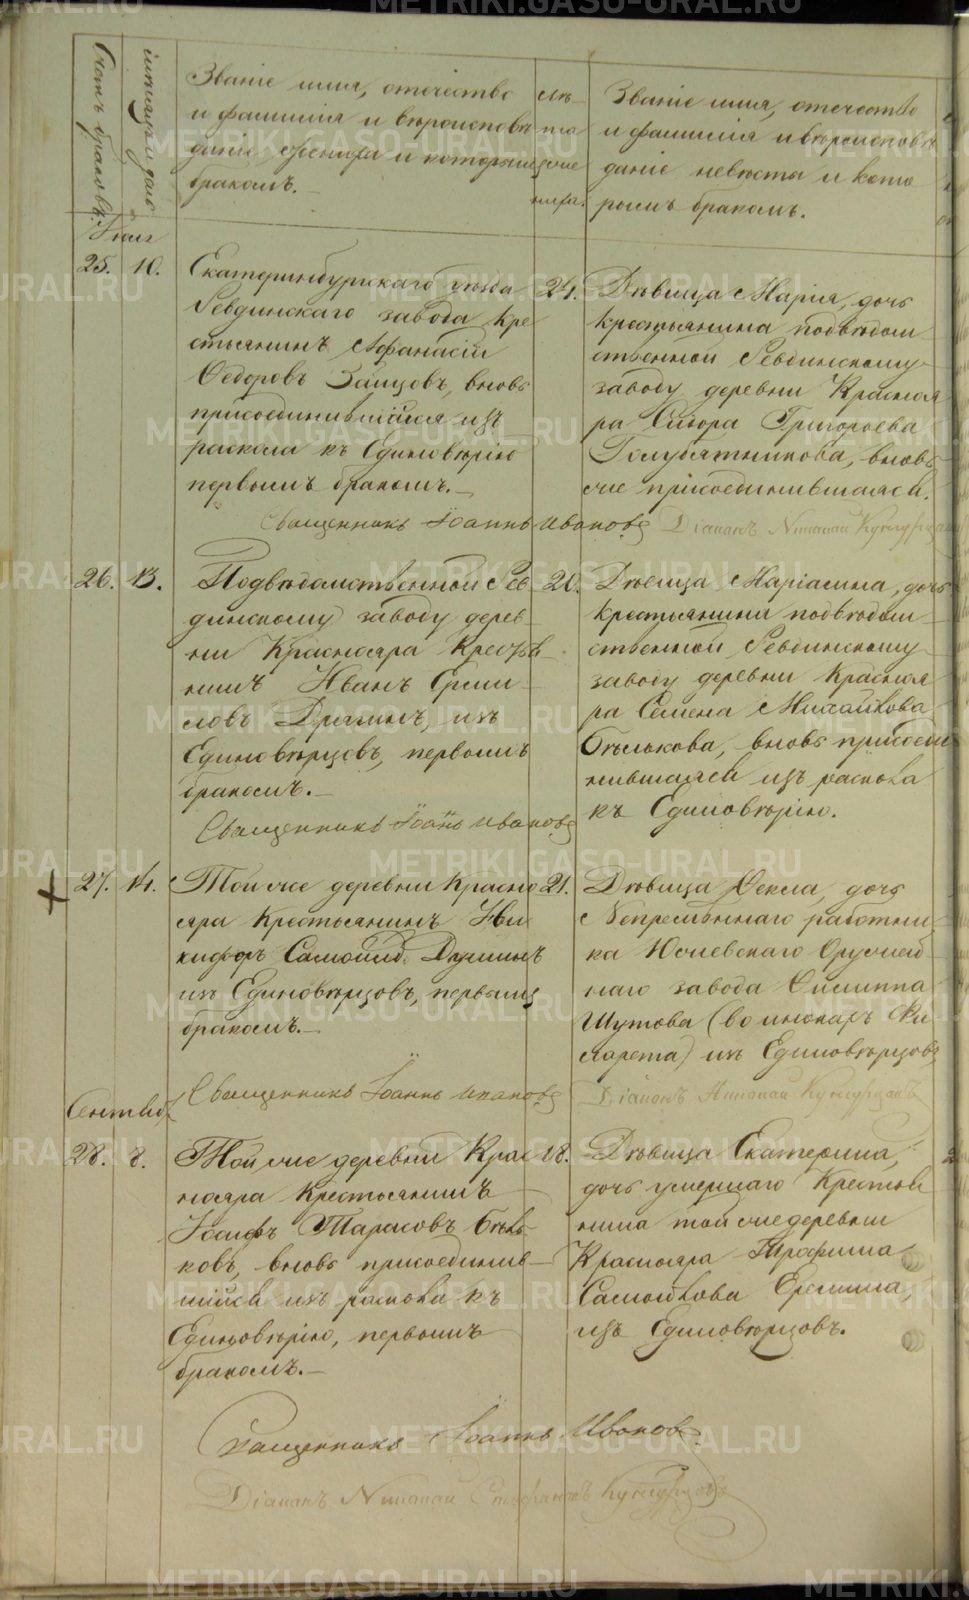 Счетъ браковъ.
Званіе имя, отечество
и фамилія и вѣроисповѣ
даніе жениха и которымъ
бракомъ.
лѣ-
та
жени
ха.
Званіе имя, отечество
и фамилія и вѣроисповѣ
даніе невѣсты и кото
рымъ бракомъ.
25. 10.
Екатеринбургскаго уѣзда
Ревдинскаго завода кре
стьянинъ Афанасій
Ѳедоровъ Зайцовъ, вновь
присоединившійся изъ
раскола къ Единовѣрію
первымъ бракомъ.
24.
Дѣвица Марія, дочь
крестьянина подвѣдом
ственной Ревдинскому
заводу деревни Краснояра
Григорьева
Голубятникова, вновь
же присоединившаяся.
Священникъ Іоаннъ Ивановъ Діаконъ Николай
26. 13.
Подвѣдомственной Рев
динскому заводу дерев
ни Краснояра Крестья
нинъ Иванъ Ерми
ловъ изъ
Единовѣрцовъ, первымъ
бракомъ.
20.
Дѣвица Маріамна, дочь
крестьянина подвѣдом
ственной Ревдинскому
заводу деревни Красноя
ра Семена Михайлова
Бѣлькова, вновь присоеди
нившаяся изъ раскола
къ Единовѣрію.
Священникъ Іоаннъ Ивановъ
27. 14.
Той же деревни Красно
яра Крестьянинъ Ни
кифоръ Самойл.
изъ Единовѣрцовъ, первымъ
бракомъ.
21.
Дѣвица Ѳекла, дочь
Непремѣннаго работни
ка Ижевскаго Оружей
наго завода Филиппа
Шутова (во инокахъ Фи
ларета) изъ Единовѣрцовъ
Священникъ Іоаннъ Ивановъ
Діаконъ Николай
Сентябрь
28. 8.
Той же деревни Крас
нояра Крестьянинъ
Іосифъ Тарасовъ Бѣль
ковъ, вновь присоединив
шійся изъ раскола къ
Единовѣрію, первымъ
бракомъ.
18.
Дѣвица Екатерина,
дочь умершаго Крестья
нина той же деревни
Краснояра Трофима
Самойлова Еремина,
изъ Единовѣрцовъ.
Священникъ Іоаннъ Ивановъ
Діаконъ Николай
METRIKI.GASO-URAL.RU